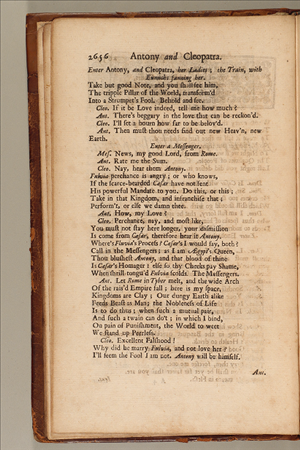 2656 Antony and Cleopatra.
Enter Antony, and Cleopatra, her Ladies; the Train, with
Eunuchs fanning her.
Take but good Note, and you shall see him,
The tripple Pillar of the World, transform'd
Into a Strumpet's Fool. Behold and see.
Cleo. If it be Love indeed, tell me how much?
Ant. There's beggary in the love that can be reckon'd.
Cleo. I'll set a bourn how far to be belov'd.
Ant. Then must thou needs find out new Heav'n, new
Earth.
Enter a Messenger.
Mes. News, my good Lord, from Rome.
Ant. Rate me the Sum.
Cleo. Nay, hear them Antony.
Fulvia perchance is angry; or who knows,
If the scarce-bearded Cæsar have not sent
His powerful Mandate to you. Do this, or this;
Take in that Kingdom, and infranchise that;
Perform't, or else we damn thee.
Ant. How, my Love?
Cleo. Perchance, nay, and most like,
You must not stay here longer, your dismission
Is come from Cæsar, therefore hear it Antony.
Where's Fulvia's Process? Cæsar's I would say, both?
Call in the Messengers; as I am Ægypt's Queen,
Thou blushest Antony, and that blood of thine
Is Cæsar's Homager: else so thy Cheeks pay Shame,
When shrill-tongu'd Fulvia scolds. The Messengers.
Ant. Let Rome in Tyber melt, and the wide Arch
Of the rais'd Empire fall; here is my space,
Kingdoms are Clay; Our dungy Earth alike
Feeds Beast as Man; the Nobleness of Life
Is to do thus; when such a mutual pair,
And such a twain can do't; in which I bind,
On pain of Punishment, the World to weet
We stand up Peerless.
Cleo. Excellent Falshood!
Why did he marry Fulvia, and not love her?
I'll seem the Fool I am not. Antony will be himself.
Ant.